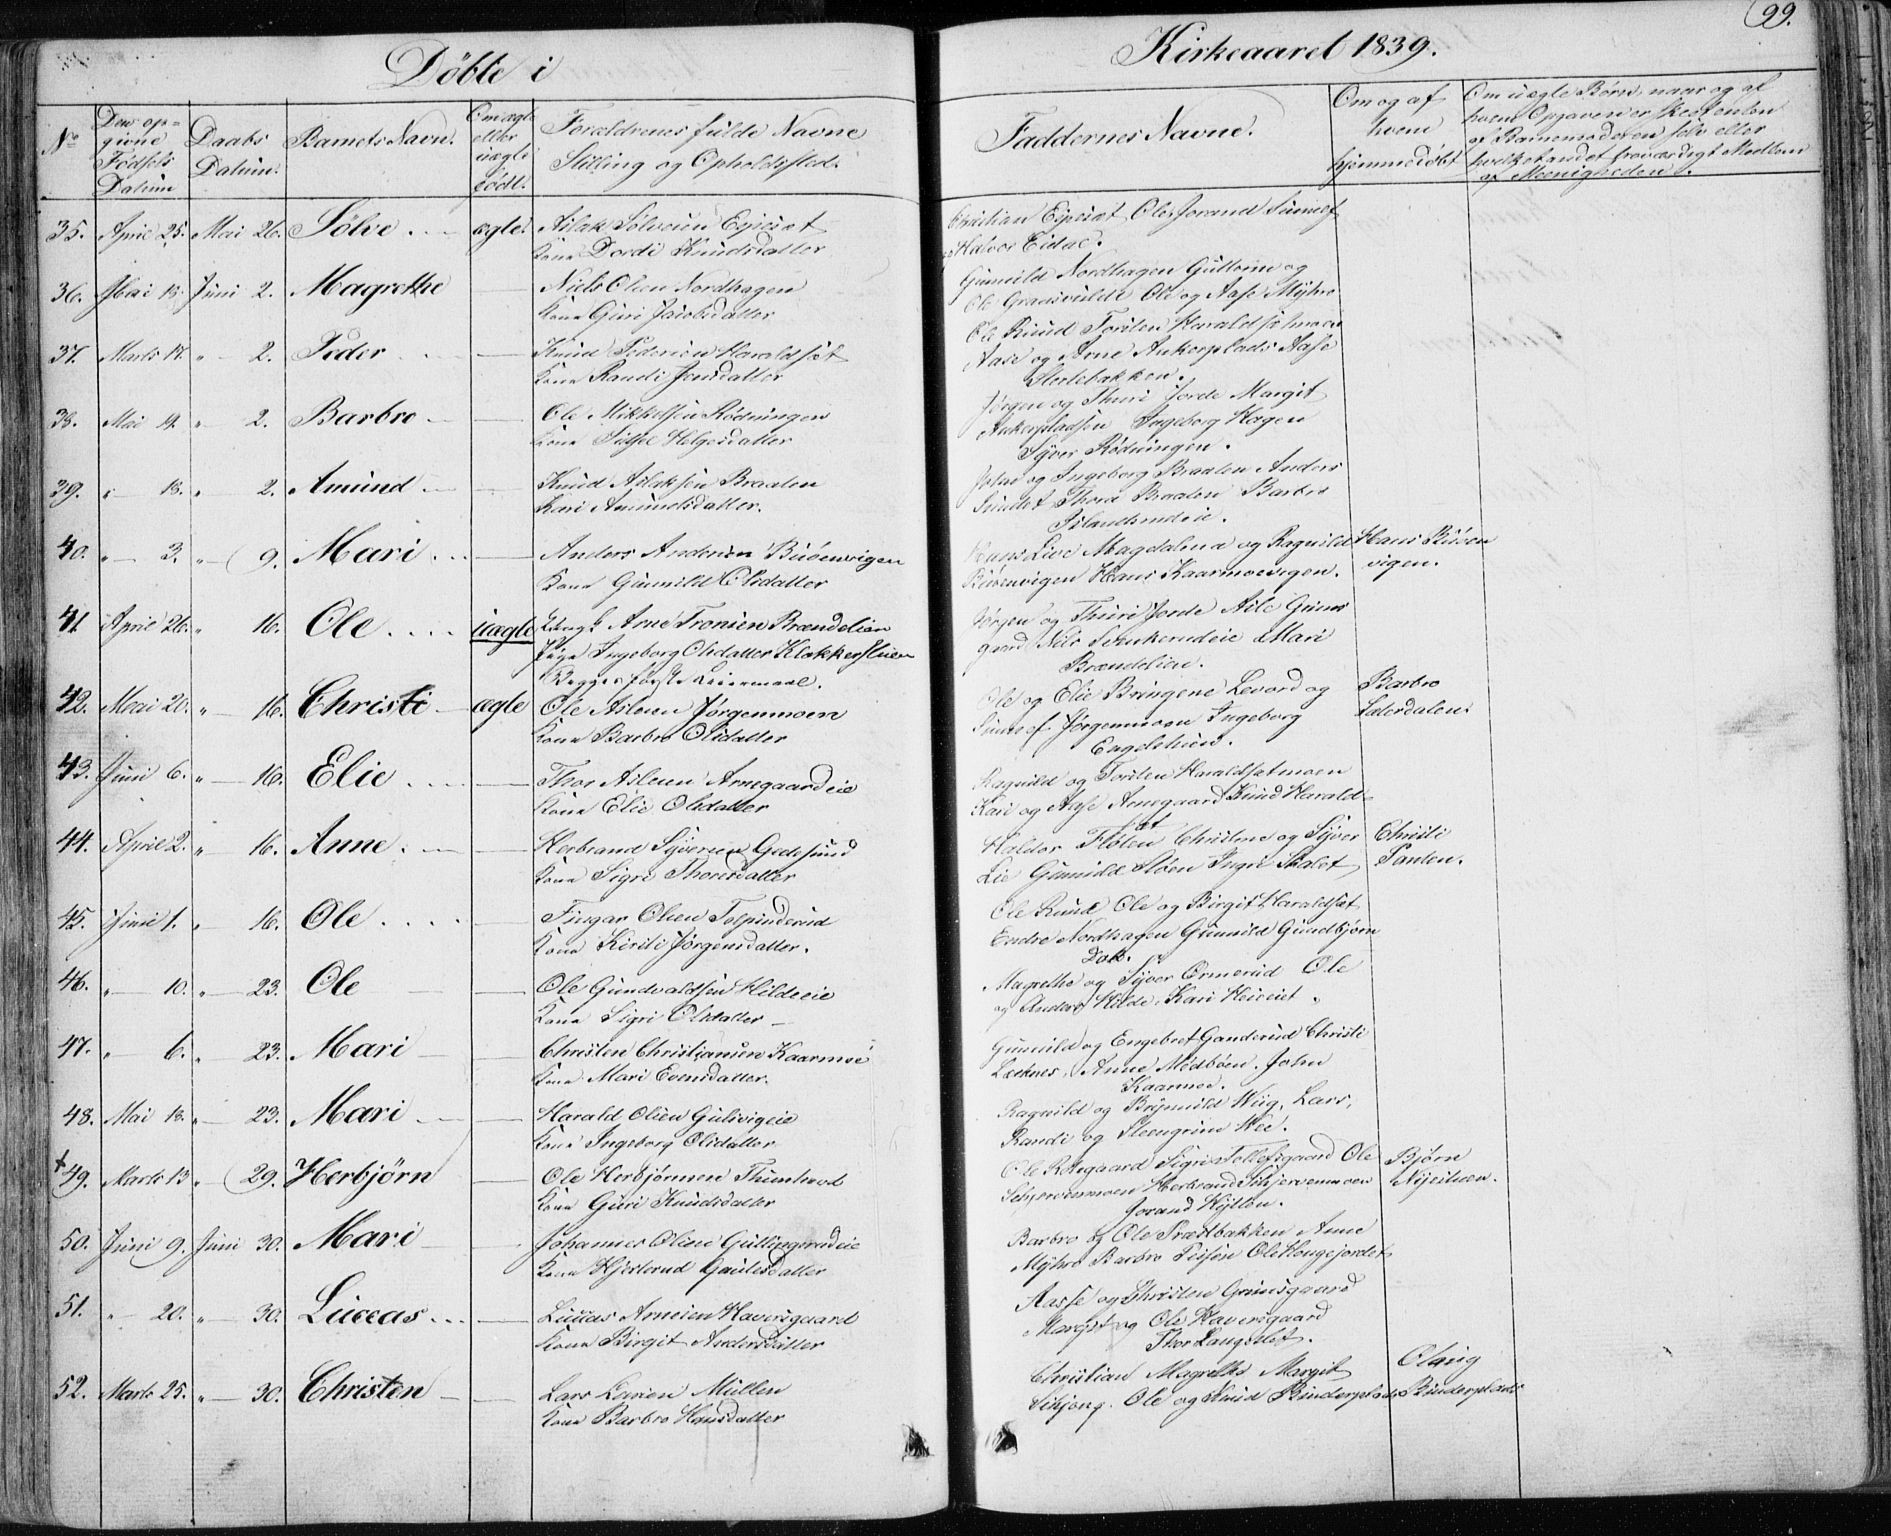 Döbte i
Kirkeaaret 1839.
99.
No
Den op=
givne
Födsels
Datum
Daabs
Datum.
Barnets Navn.
Om ægte
eller
uægte
födt.
Forældrenes fulde Navne
Stilling og Opholdssted.
Faddernes Navne.
Om og af
hvem
hjemmedöbt
Om uægte Börn, naar og af
hvem Opgaven er skeet enten
af Barnemoderen selv eller
hvilketandet troværdigt Medlem
af Menigheden.
35. April 25. Mai 26. Sölve ægte. Aslak Sölvesen Espeset
Kone Dordi Knudsdatter
Christian Espeset Ole Jorand Sunnef
og Halvor Eidal.
36. Mai 13. Juni 2. Magrethe — Niels Olsen Nordhagen
Kone Guri Jacobsdatter
Gunnild Nordhagen Guttorm og
Ole Ole og Aase Myhre
37. Marts 17. " 2. Peder — Knud Pedersen Haraldset
Kone Randi Jensdatter
Ole Ruud Torsten Haraldsetmoen
Aase og Arne Ankerplads Aase
Stortebakken.
38. Mai 19. " 2. Barbro — Ole Mikkelsen Rödningen
Kone Sissel Helgesdatter
Jörgen og Thuri Jorde Margit
Ankerpladsen Ingeborg Hagen
Syver Rödningen.
39. " 13. " 2. Amund — Knud Aslaksen Braaten
Kari Amundsdatter.
Johan og Ingeborg Braaten Anders
Sundet Thora Braaten Barbro
40. " 3. " 9. Mari — Anders Andersen Buöenvigen
Kone Gunnild Olsdatter
Live Magdalena og Ragnild
Buöenvigen Hans Kaarmoevigen.
Hans Buöen
vigen.
41 April 26. " 16. Ole uægte Ungk. Arne Tronsen Brændelien
Pige Ingeborg Olsdatter Klækkerstuen
Begges förste Leiermaal.
Jörgen og Thuri Jorde Asle Grims
gaard Nils Mari
Brændelien.
42. Mai 20. " 16. Christi ægte Ole Aslesen Jörgenmoen
Kone Barbro Olsdatter
Ole og Elie Bringene Levord og
Sunnef Jörgenmoen Ingeborg
Barbro
Sæterdalen.
43. Juni 6. " 16. Elie — Thor Aslesen Arnegaardeie
Kone Elie Olsdatter
Ragnild og Torsten Haraldsætmoen
Kari og Aase Arnegaard Knud Harald=
set
44. April 2. " 16. Anne — Herbrand Syversen Gjedesund
Kone Sigri Thoresdatter
Haldor Flöten Christine og Syver
Lie Gunnild Stöen Ingri Skalet
Christi
Panten.
45. Juni 1. " 16. Ole — Fingar Olsen Tolpinderud
Kone Kirsti Jörgensdatter.
Ole Ruud Ole og Birgit Haraldset
Endre Nordhagen Gunnild Gundbjörn
Dok.
46. " 10. " 23. Ole — Ole Gundvaldsen Hildeeie
Kone Sigri Olsdatter
Magrethe og Syver Ormerud Ole
og Anders Hilde. Kari
47. " 6. " 23. Mari — Christen Christiansen Kaarmoe
Kone Mari Evensdatter.
Gunnild og Engebret Ganderud Christi
Leknes, Anne Medböen. John
Kaarmoe.
48. Mai 13. " 23. Mari — Harald Olsen Gulsvigeie
Kone Ingeborg Olsdatter
Ragnild og Brynnild Wiig, Lars,
Randi og Steengrim Wee.
+
49. Marts 13 " 29. Herbjörn — Ole Herbjörnsen
Kone Guri Knudsdatter
Ole Rotegaard Sigri Tollefsgaard Ole
Schjervenmoen Herbrand Schjervenmoen
Jorand
Björn
50. Juni 9. Juni 30. Mari — Johannes Olsen Gullingsrudeie
Kone Hjertrud Gaulesdatter
Barbro og Ole Trædtbakken Anne
Myhre Barbro Ole Haugejordet
51. " 20. " 30. Luccas — Luccas Arnesen Haversgaard
Kone Birgit Andersdatter
Aasse og Christen Grimsgaard
Margit og Ole Haversgaard
Thor Langeslet.
52. Marts 25. " 30. Christen — Lars Larsen Mullen
Kone Barbro Hansdatter
Christian Magrethe Margit
Ole og Knud Rinderplads
Olaug
Rinderplads